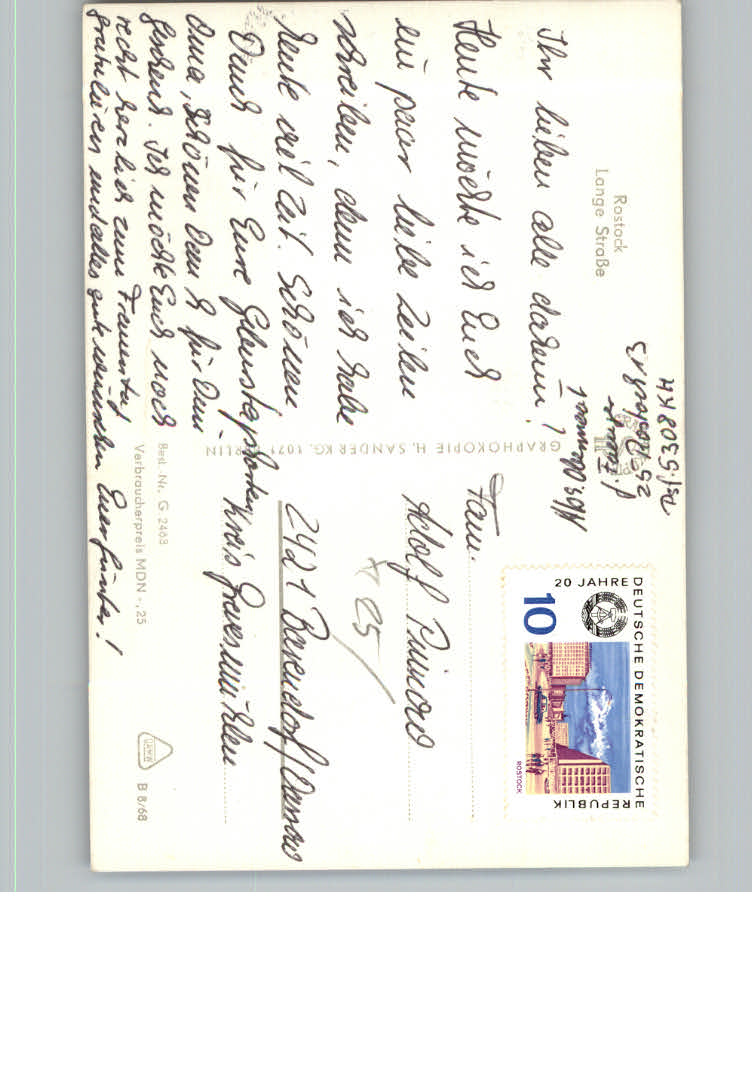 Rostock
Lange Straße
Ihr lieben alle daheim!
Heute möchte ich Euch
ein paar liebe Zeilen
schreiben, denn ich habe
heute viel Zeit. Schönen
Dank für Eure
Oma, schönen Dank für Dein
Geschenk. Ich möchte Euch noch
recht herzlich zum Frauentag
gratulieren und alles gute wünschen Euer Günter!
25 Rostock
GRAPHOKOPIE H. SANDER KG. 1071 BERLIN
Best. Nr. G 2463
Verbraucherpreis MDN -,25
B 8/68
20 JAHRE DEUTSCHE DEMOKRATISCHE REPUBLIK
10
ROSTOCK
Fam.
Adolf
25
2421
Kreis Grevesmühlen